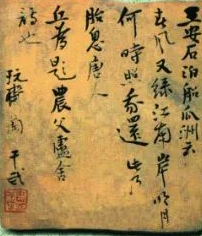 王安石泊船瓜洲云
春風又綠江南岸明月
何時照還此乃
胎息唐人
丘為題農父廬舍
詩也